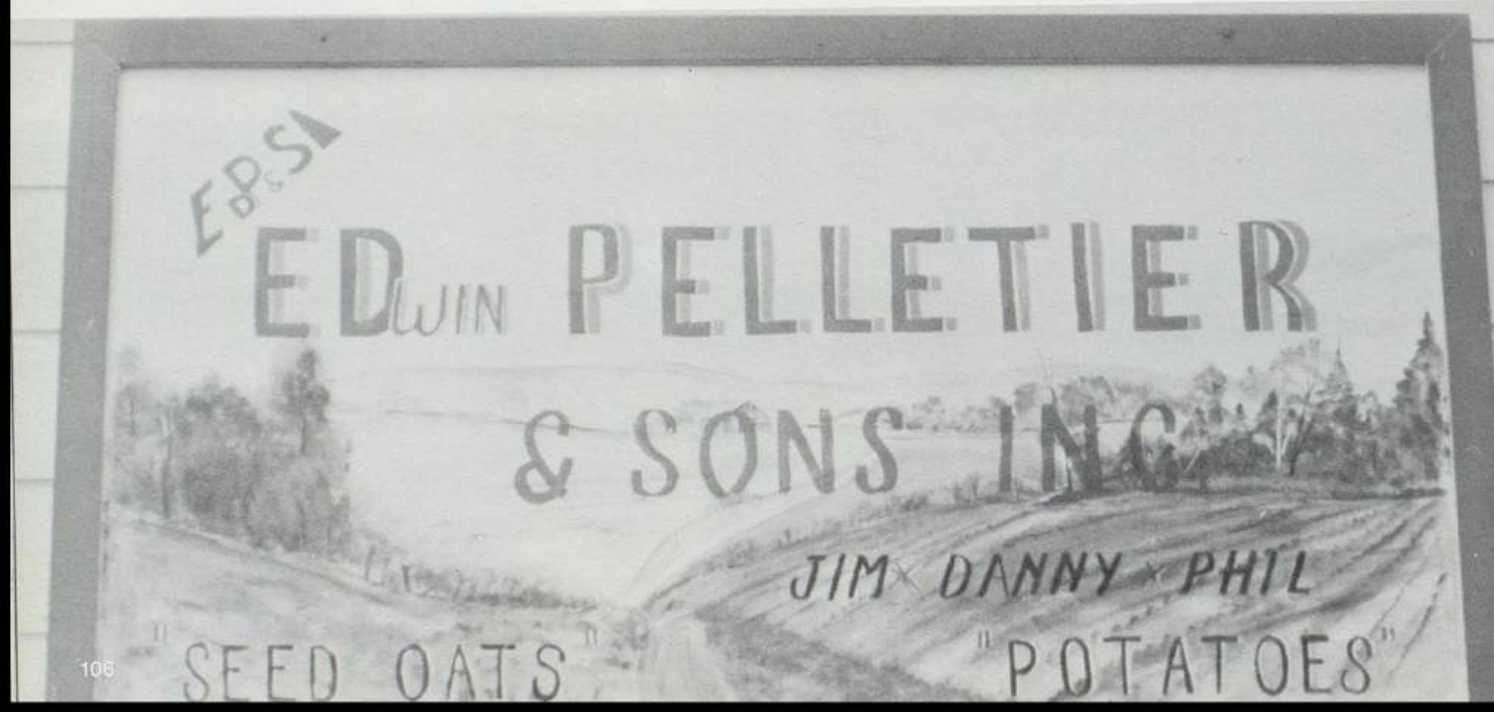 EDP&S
EDWIN PELLETIER
& SONS INC
JIM x DANNY x PHIL
"SEED OATS" "POTATOES"
106